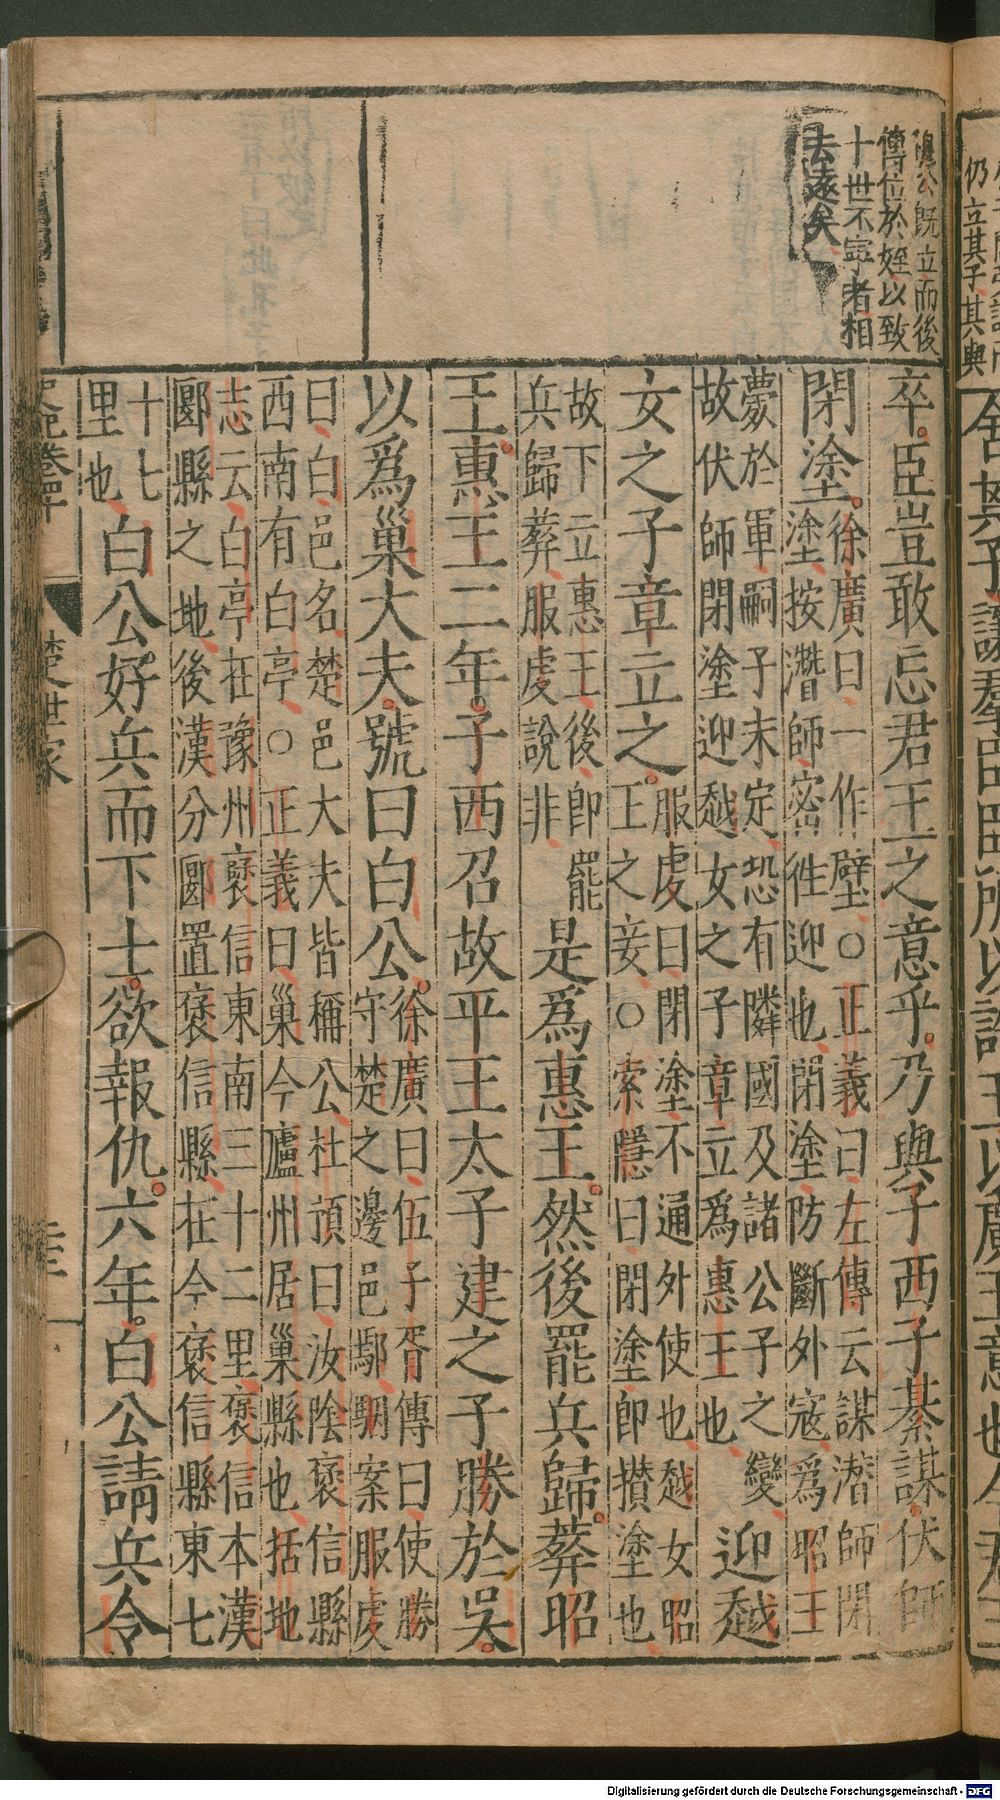 穆公既立而後
傳位於姪以致
十世不寧者相
去遠矣
卒。臣豈敢忘君王之意乎。乃與子西子綦謀。伏師
閉塗。
徐廣曰、一作壁、○正義曰、左傳云謀潛師閉
塗、按潛師密徃迎也、閉塗防斷外寇、爲昭王
薨於軍、嗣子未定、恐有隣國及諸公子之變、
故伏師閉塗迎越女之子章立爲惠王也、
迎越
女之子章立之。
服虔曰、閉塗不通外使也、越女昭
王之妾、○索隱曰、閉塗、即攢塗也、
故下云惠王後即罷
兵歸葬、服虔說非、
是爲惠王。然後罷兵歸。葬昭
王。惠王二年。子西召故平王太子建之子勝於吳。
以爲巢大夫。號曰白公。
徐廣曰、伍子胥傳曰、使勝
守楚之邊邑鄢、駰案服虔
曰、白、邑名、楚邑大夫皆稱公、杜預曰、汝陰褒信縣
西南有白亭、○正義曰、巢今廬州居巢縣也、括地
志云、白亭在豫州褒信東南三十二里、褒信本漢
郾縣之地、後漢分郾置褒信縣、在今褒信縣東七
十七
里也、
白公好兵而下士。欲報仇。六年。白公請兵令
史記卷四十
楚世家